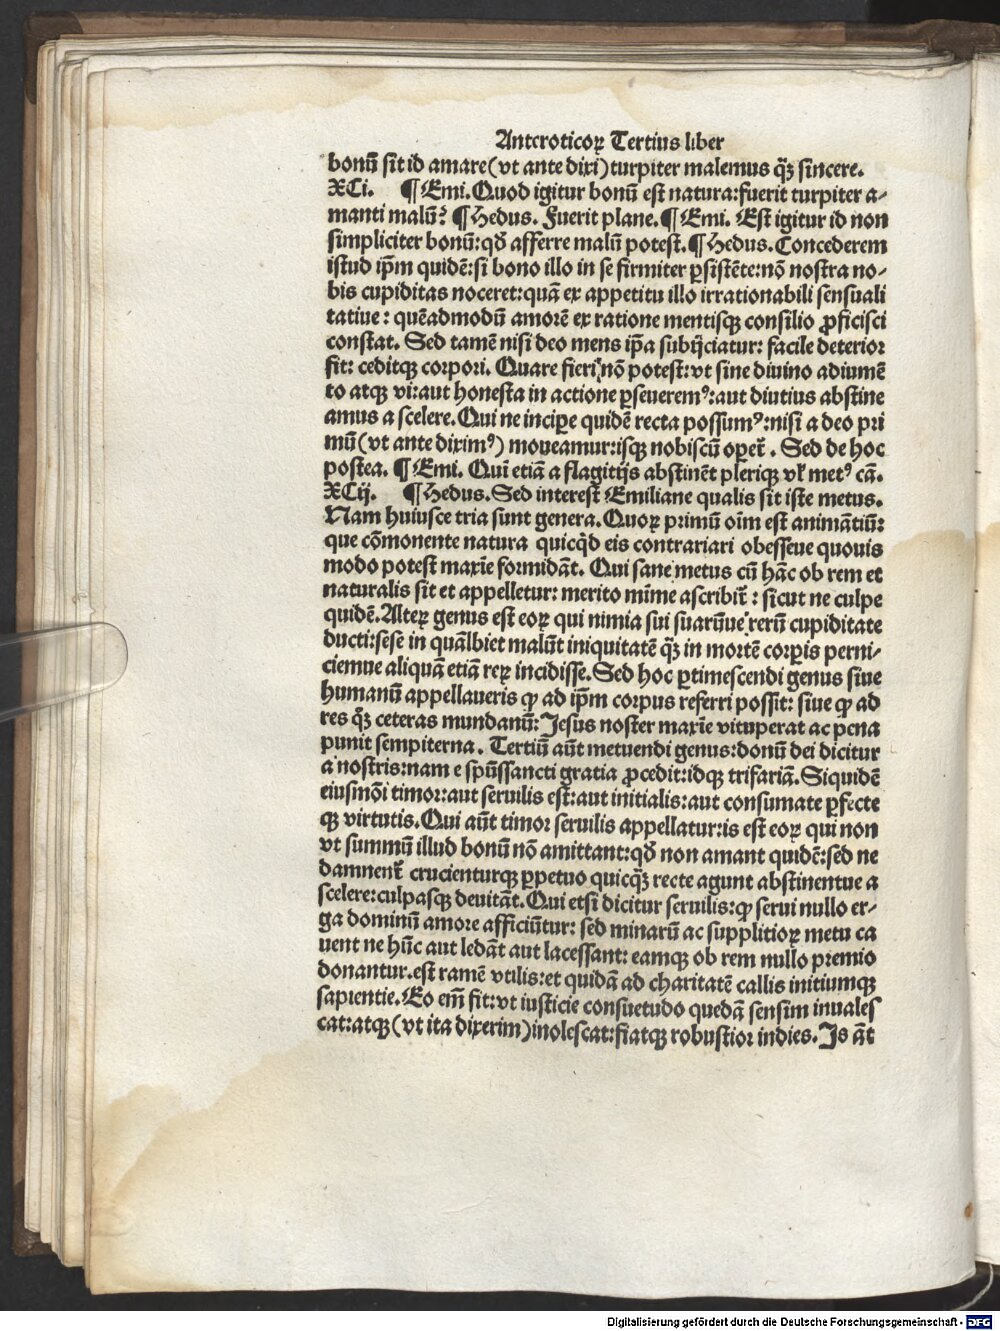 Anteroticoꝝ Tertius liber
bonū sit id amare (vt ante dixi) turpiter malemus qꝫ sincere.
XCi. ¶ Emi. Quod igitur bonū est natura: fuerit turpiter a-
manti malū? ¶ Hedus. Fuerit plane. ¶ Emi. Est igitur id non
simpliciter bonū: qď afferre malū potest. ¶ Hedus. Concederem
istud ip̄m quidē: si bono illo in se firmiter ꝑsistēte: nō nostra no-
bis cupiditas noceret: quā ex appetitu illo irrationabili sensuali
tatiue: quēadmodū amorē ex ratione mentisqꝫ consilio ꝓficisci
constat. Sed tamē nisi deo mens ip̄a subijciatur: facile deterior
fit: ceditqꝫ corpori. Quare fieri nō potest: vt sine diuino adiumē
to atqꝫ vi: aut honesta in actione ꝑseueremꝰ: aut diutius abstine
amus a scelere. Qui ne incipe quidē recta possumꝰ: nisi a deo pri
mū (vt ante diximꝰ) moueamur: isqꝫ nobiscū operet̄. Sed de hoc
postea. ¶ Emi. Qui etiā a flagitijs abstinēt pleriqꝫ vl̓ metꝰ cā.
XCij. ¶ Hedus. Sed interest Emiliane qualis sit iste metus.
Nam huiusce tria sunt genera. Quoꝝ primū oīm est animātiū:
que cōmonente natura quicqͥd eis contrariari obesseue quouis
modo potest maxīe formidāt. Qui sane metus cū hāc ob rem et
naturalis sit et appelletur: merito mīme ascribit̄: sicut ne culpe
quidē. Alteꝝ genus est eoꝝ qui nimia sui suarūue rerū cupiditate
ducti: sese in quālbiet malūt iniquitatē qꝫ in mortē corꝑis perni-
ciemue aliquā etiā reꝝ incidisse. Sed hoc ꝑtimescendi genus siue
humanū appellaueris ꝙ ad ip̄m corpus referri possit: siue ꝙ ad
res qꝫ ceteras mundanū: Jesus noster maxīe vituperat ac pena
punit sempiterna. Tertiū aūt metuendi genus: donū dei dicitur
a nostris: nam e spūssancti gratia ꝓcedit: idqꝫ trifariā. Siquidē
eiusmōi timor: aut seruilis est: aut initialis: aut consumate ꝑfecte
qꝫ virtutis. Qui aūt timor seruilis appellatur: is est eoꝝ qui non
vt summū illud bonū nō amittant: qď non amant quidē: sed ne
damnent̄ crucienturqꝫ ꝑpetuo quicqꝫ recte agunt abstinentue a
scelere: culpasqꝫ deuitāt. Qui etsi dicitur seruilis: ꝙ serui nullo er-
ga dominū amore afficiūtur: sed minarū ac supplitioꝝ metu ca
uent ne hūc aut ledāt aut lacessant: eamqꝫ ob rem nullo premio
donantur. est ramē vtilis: et quidā ad charitatē callis initiumqꝫ
sapientie. Eo em̄ fit: vt iusticie consuetudo quedā sensim inuales
cat: atqꝫ (vt ita dixerim) inolescat: fiatqꝫ robustior indies. Is āt
Digitalisierung gefördert durch die Deutsche Forschungsgemeinschaft - DFG